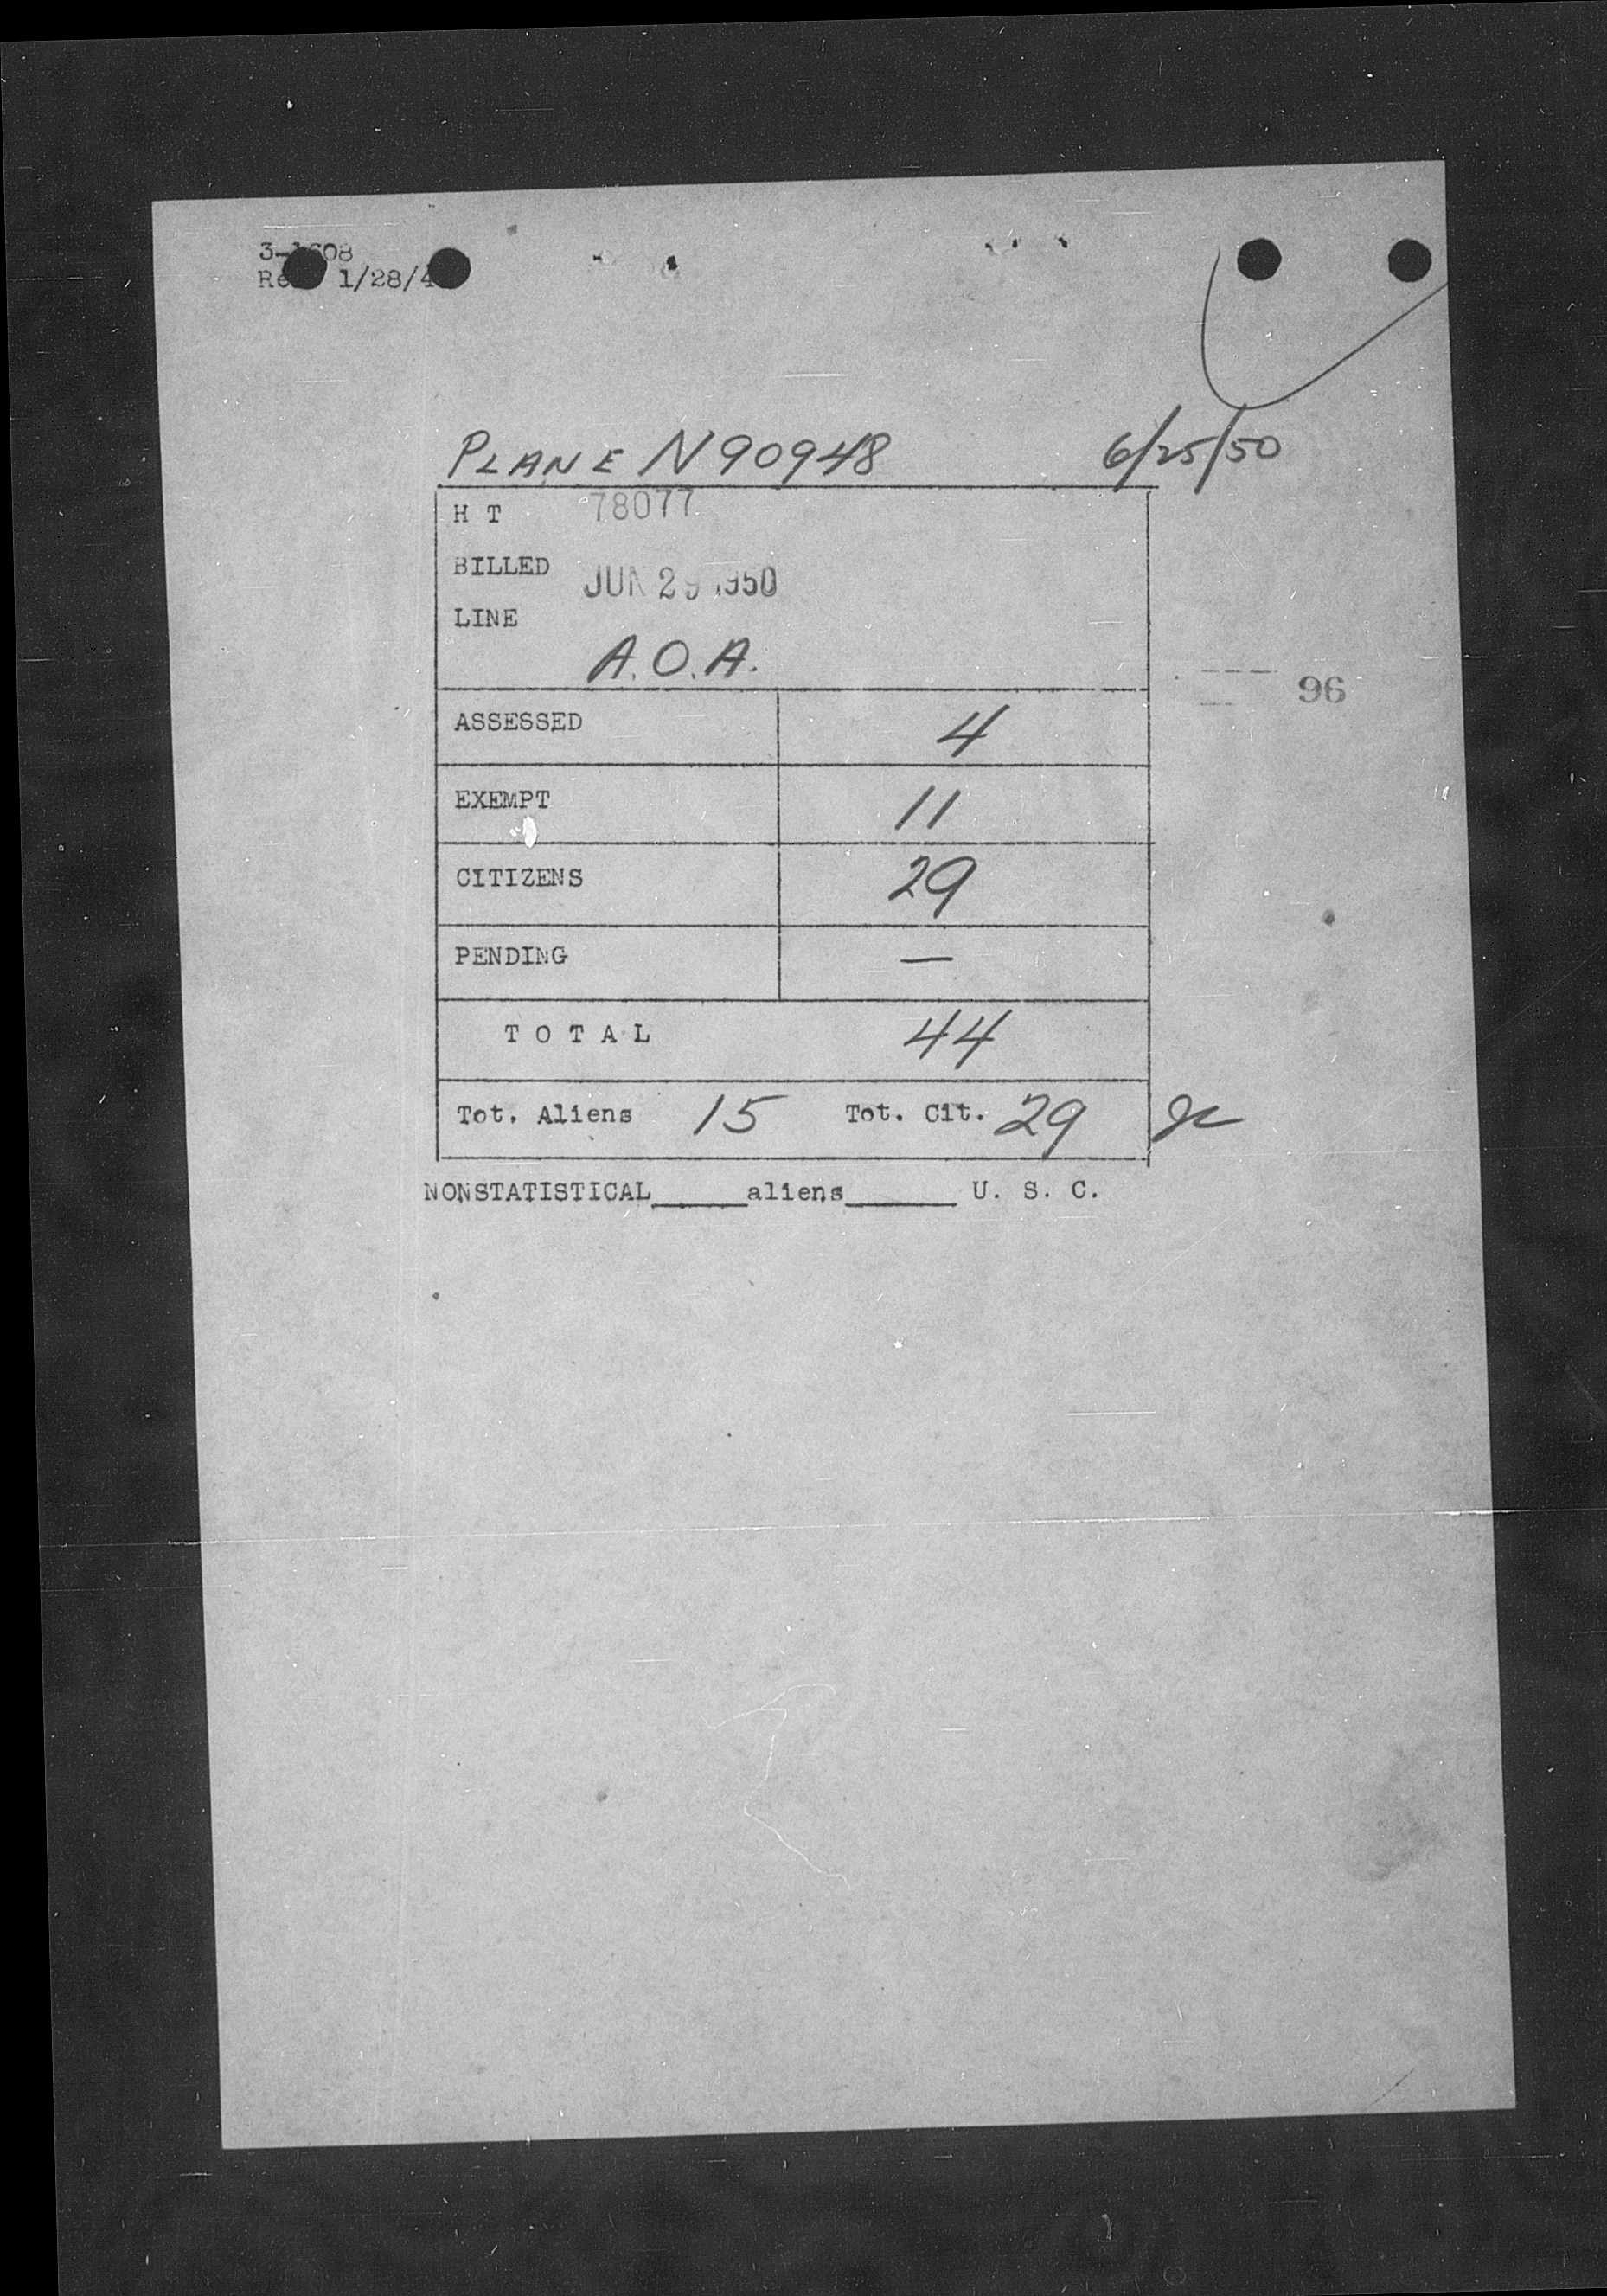 3-1608
1/28/4
PLANE N90948 6/25/50
H T 78077
BILLED JUN 29 1950
LINE
A.O.A.
96
ASSESSED 4
EXEMPT 11
CITIZENS 29
PENDING —
TOTAL 44
Tot. Aliens 15 Tot. Cit. 29
NONSTATISTICAL_____aliens______ U. S. C.